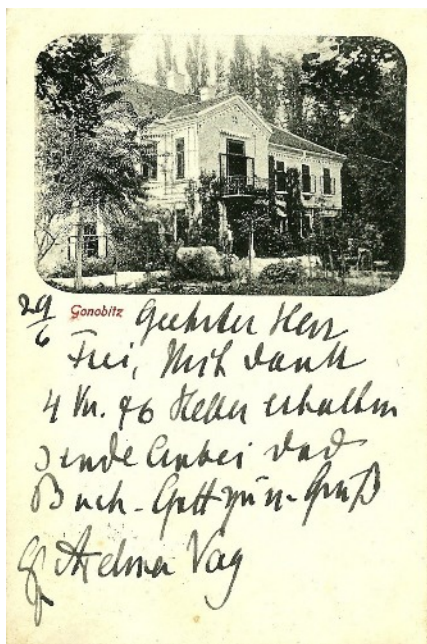 29/6 Gonobitz Geehrter Herr
Frei, Mit dank
4 Kr. 70 Heller erhalten
sende Anbei das
Buch - Gott zum - Gruß
Adelma Vay